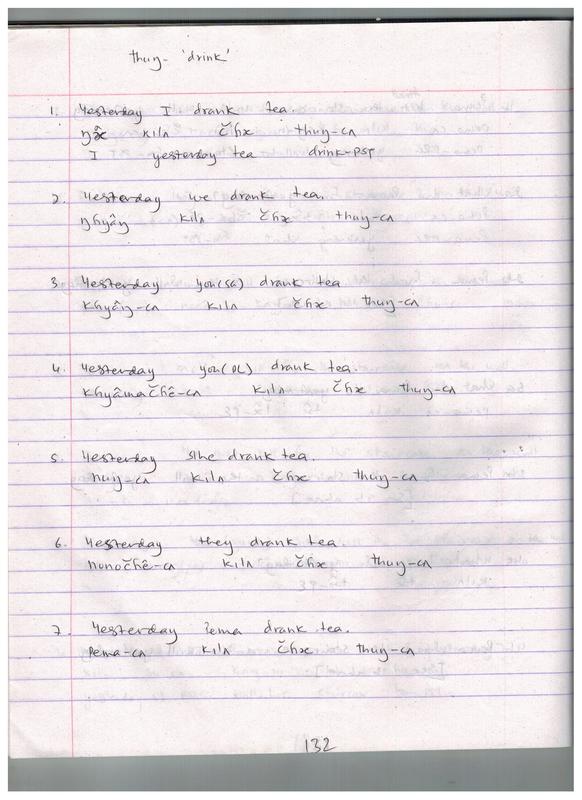 thuŋ- 'drink'
1. Yesterday I drank tea.
kilʌ čhx thuŋ-cʌ
I yesterday tea drink-PST
2. Yesterday we drank tea.
ŋhyâŋ kilʌ čhx thuŋ-cʌ
3. Yesterday you(SG) drank tea
khyâŋ-cʌ kilʌ čhx thuŋ-cʌ
4. Yesterday you(PL) drank tea.
khyâmačhê-cʌ kilʌ čhx thuŋ-cʌ
5. Yesterday s/he drank tea.
huŋ-cʌ kilʌ čhx thuŋ-cʌ
6. Yesterday they drank tea
hunočhê-cʌ kilʌ čhx thuŋ-cʌ
7. Yesterday Pema drank tea.
Pema-cʌ kilʌ čhx thuŋ-cʌ
132